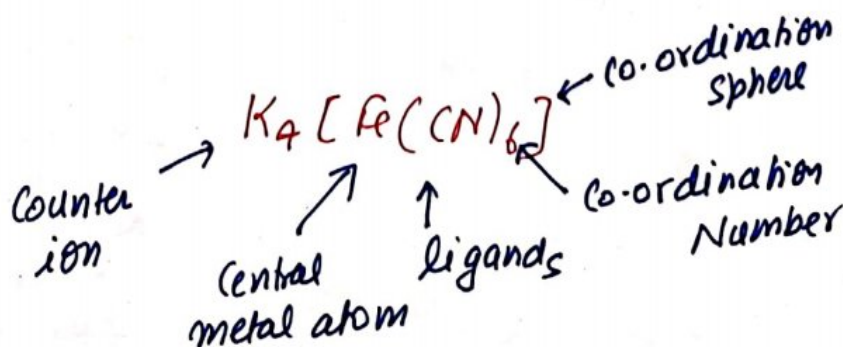 Co-ordination
sphere
K4 [Fe(CN)6]
Counter
ion
Central
metal atom
ligands
Co-ordination
Number